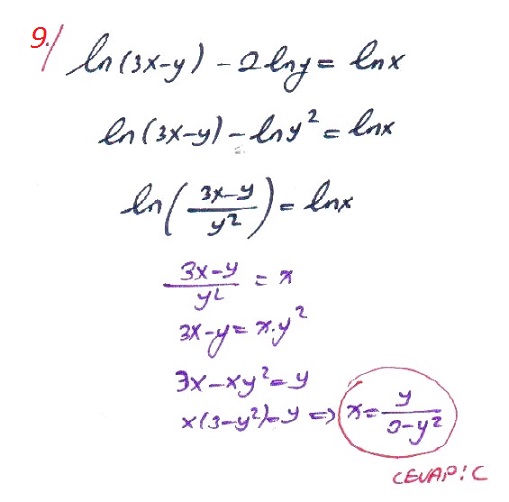 9./ ln(3x-y) - 2lny = lnx
ln(3x-y) - lny² = lnx
ln((3x-y)/y²) = lnx
(3x-y)/y² = x
3x-y = x.y²
3x-xy² = y
x(3-y²) = y ⇒ x = y/(3-y²)
CEVAP: C